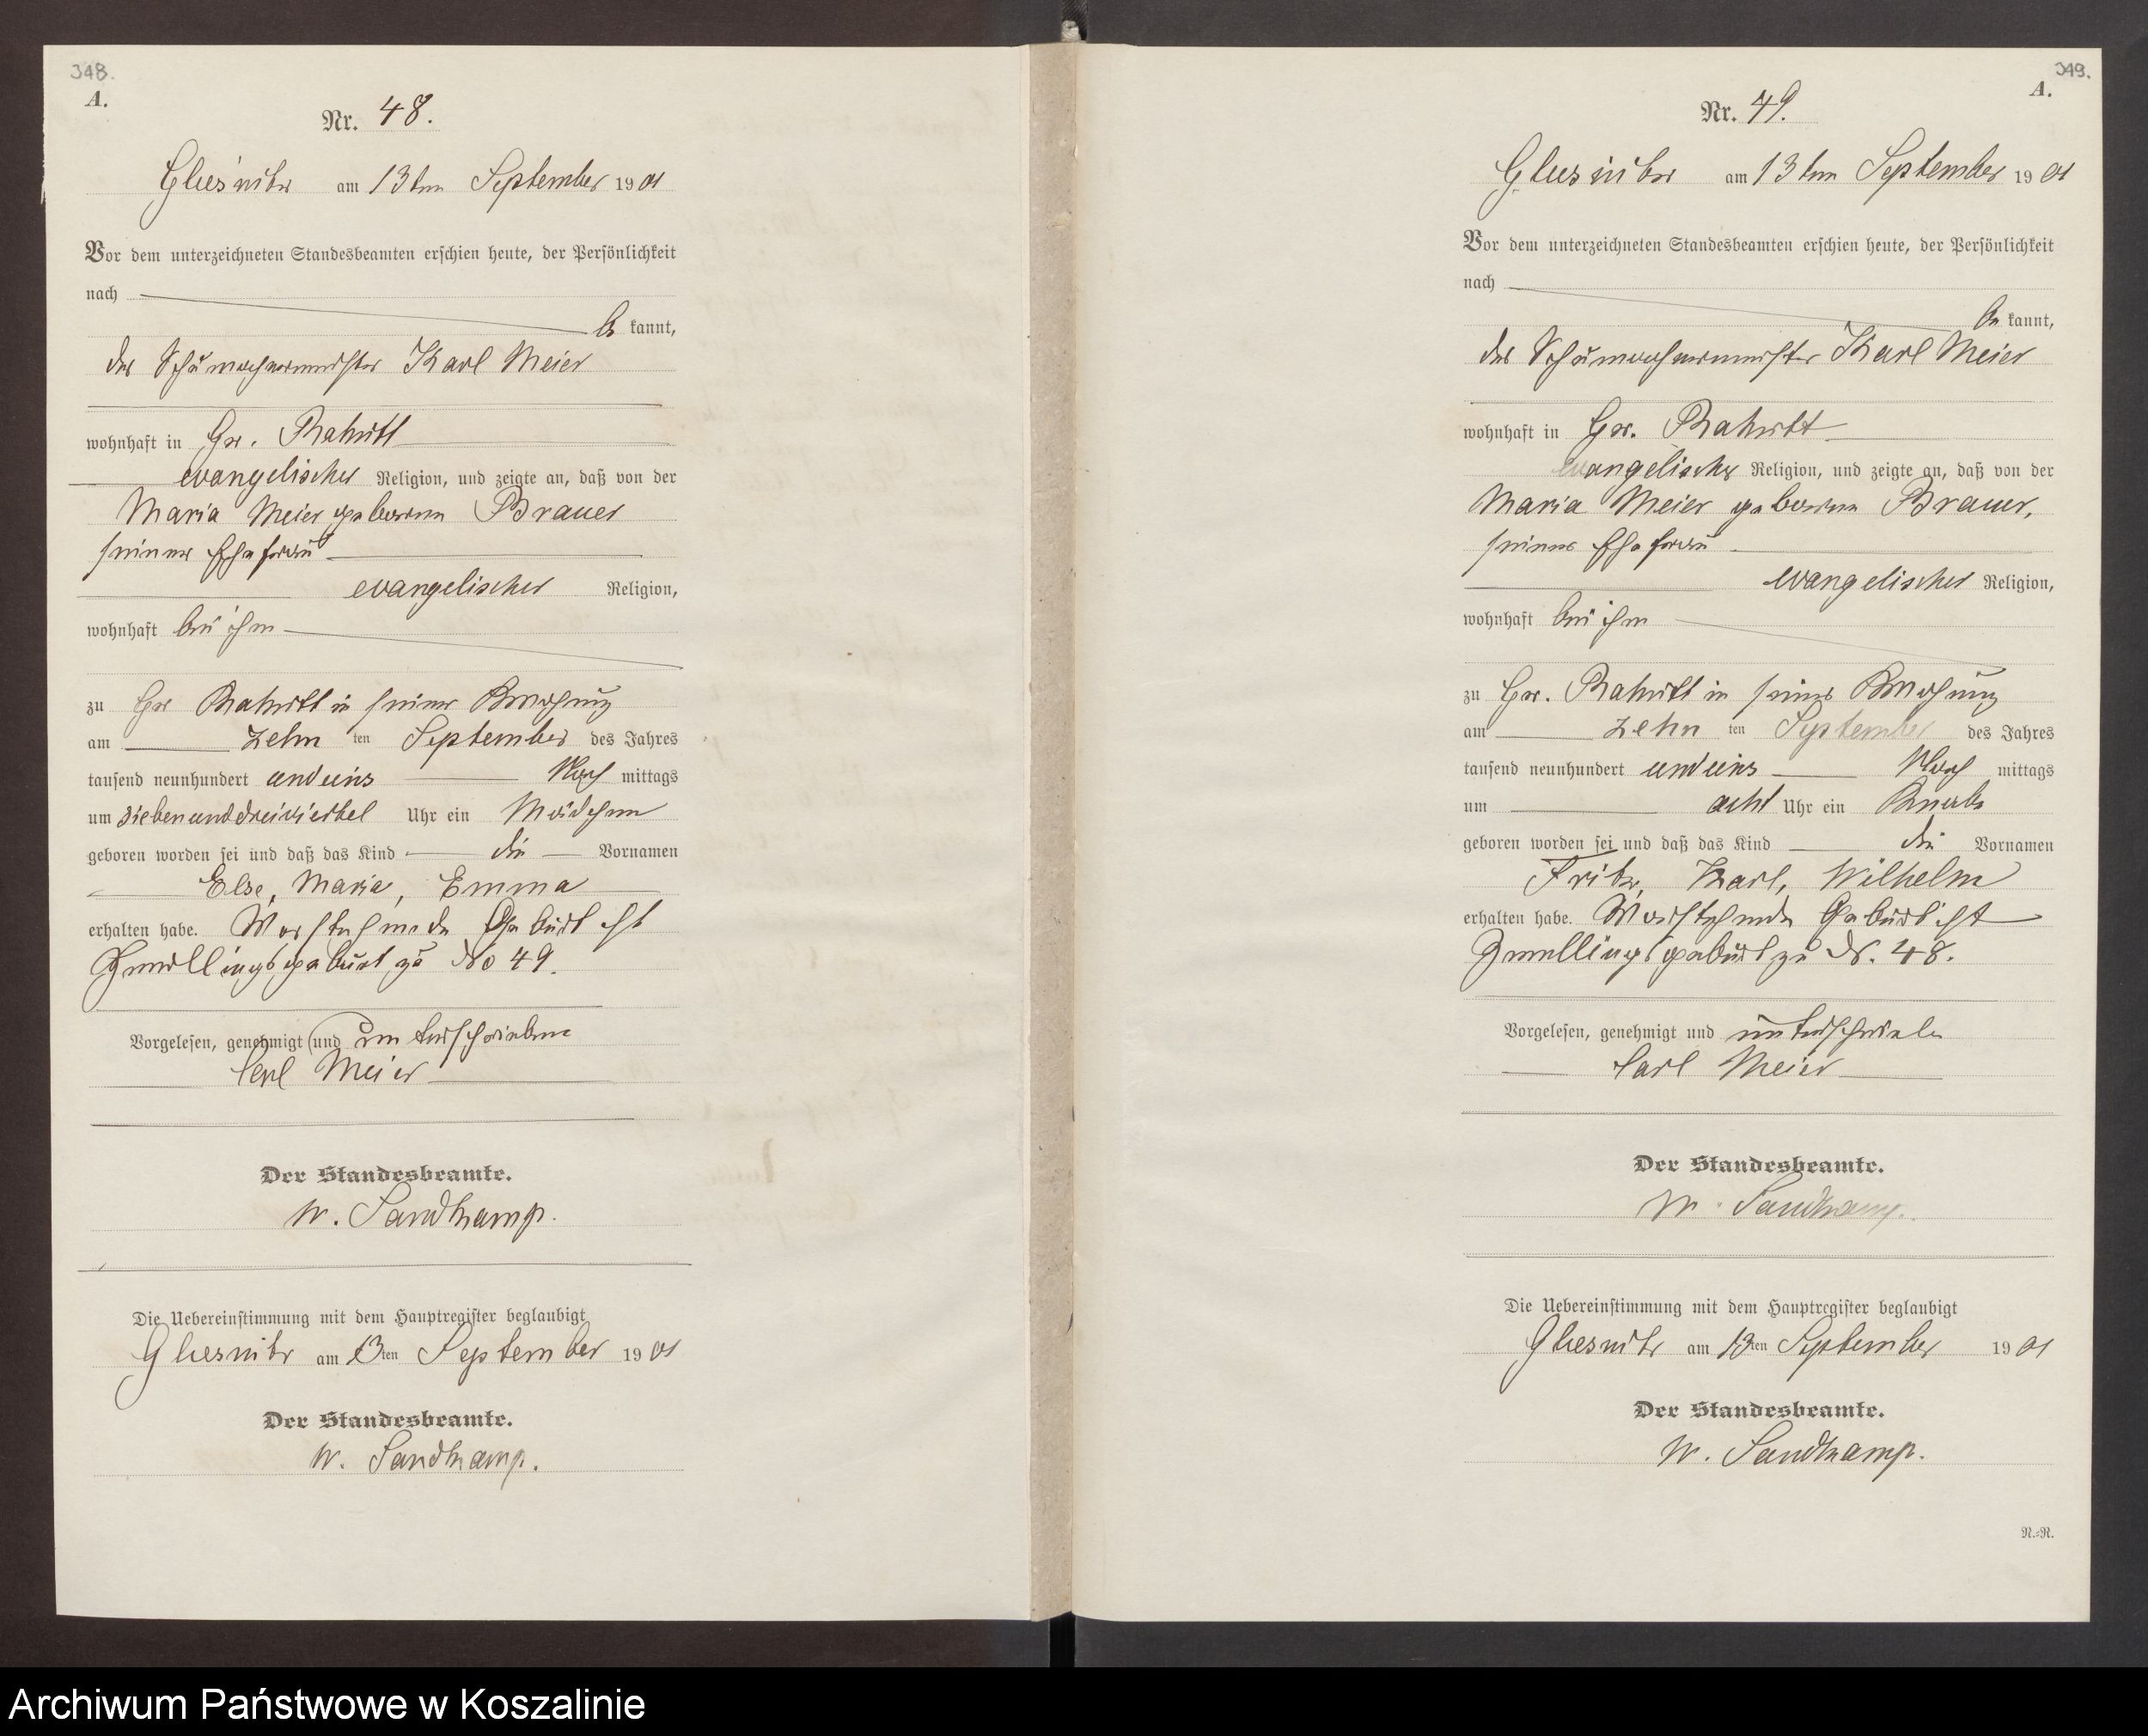 348.
A.
Nr. 48.
Gluśnitz am 13ten September 1901
Vor dem unterzeichneten Standesbeamten erschien heute, der Persönlichkeit
nach
be kannt,
der Schuhmachermeister Karl Meier
wohnhaft in Gr. Rakitt
evangelischer Religion, und zeigte an, daß von der
Maria Meier geborene Brauer
seiner Ehefrau
evangelischer Religion,
wohnhaft bei ihm
zu Gr Rakitt in seiner Wohnung
am zehn ten September des Jahres
tausend neunhundert undeins Nach mittags
um siebenunddreiviertel Uhr ein Mädchen
geboren worden sei und daß das Kind die Vornamen
Else, Maria, Emma
erhalten habe. Vorstehende Geburt ist
Zwillingsgeburt zu No 49.
Vorgelesen, genehmigt und unterschrieben
Carl Meier
Der Standesbeamte.
W. Sandkamp.
Die Uebereinstimmung mit dem Hauptregister beglaubigt
am 13ten September 1901
Der Standesbeamte.
W. Sandkamp.
349.
A.
Nr. 49.
am 13ten September 1901
Vor dem unterzeichneten Standesbeamten erschien heute, der Persönlichkeit
nach
be kannt,
der Schuhmachermeister Karl Meier
wohnhaft in Gr. Rakitt
evangelischer Religion, und zeigte an, daß von der
Maria Meier geborene Brauer,
seiner Ehefrau
evangelischer Religion,
wohnhaft bei ihm
zu Gr. Rakitt in seiner Wohnung
am zehn ten September des Jahres
tausend neunhundert undeins Nach mittags
um acht Uhr ein Knabe
geboren worden sei und daß das Kind die Vornamen
Fritz, Karl, Wilhelm
erhalten habe. Vorstehende Geburt ist
Zwillingsgeburt zu N. 48.
Vorgelesen, genehmigt und unterschrieben
Carl Meier
Der Standesbeamte.
W. Sandkamp.
Die Uebereinstimmung mit dem Hauptregister beglaubigt
am 13ten September 1901
Der Standesbeamte.
W. Sandkamp.
N.=N.
Archiwum Państwowe w Koszalinie